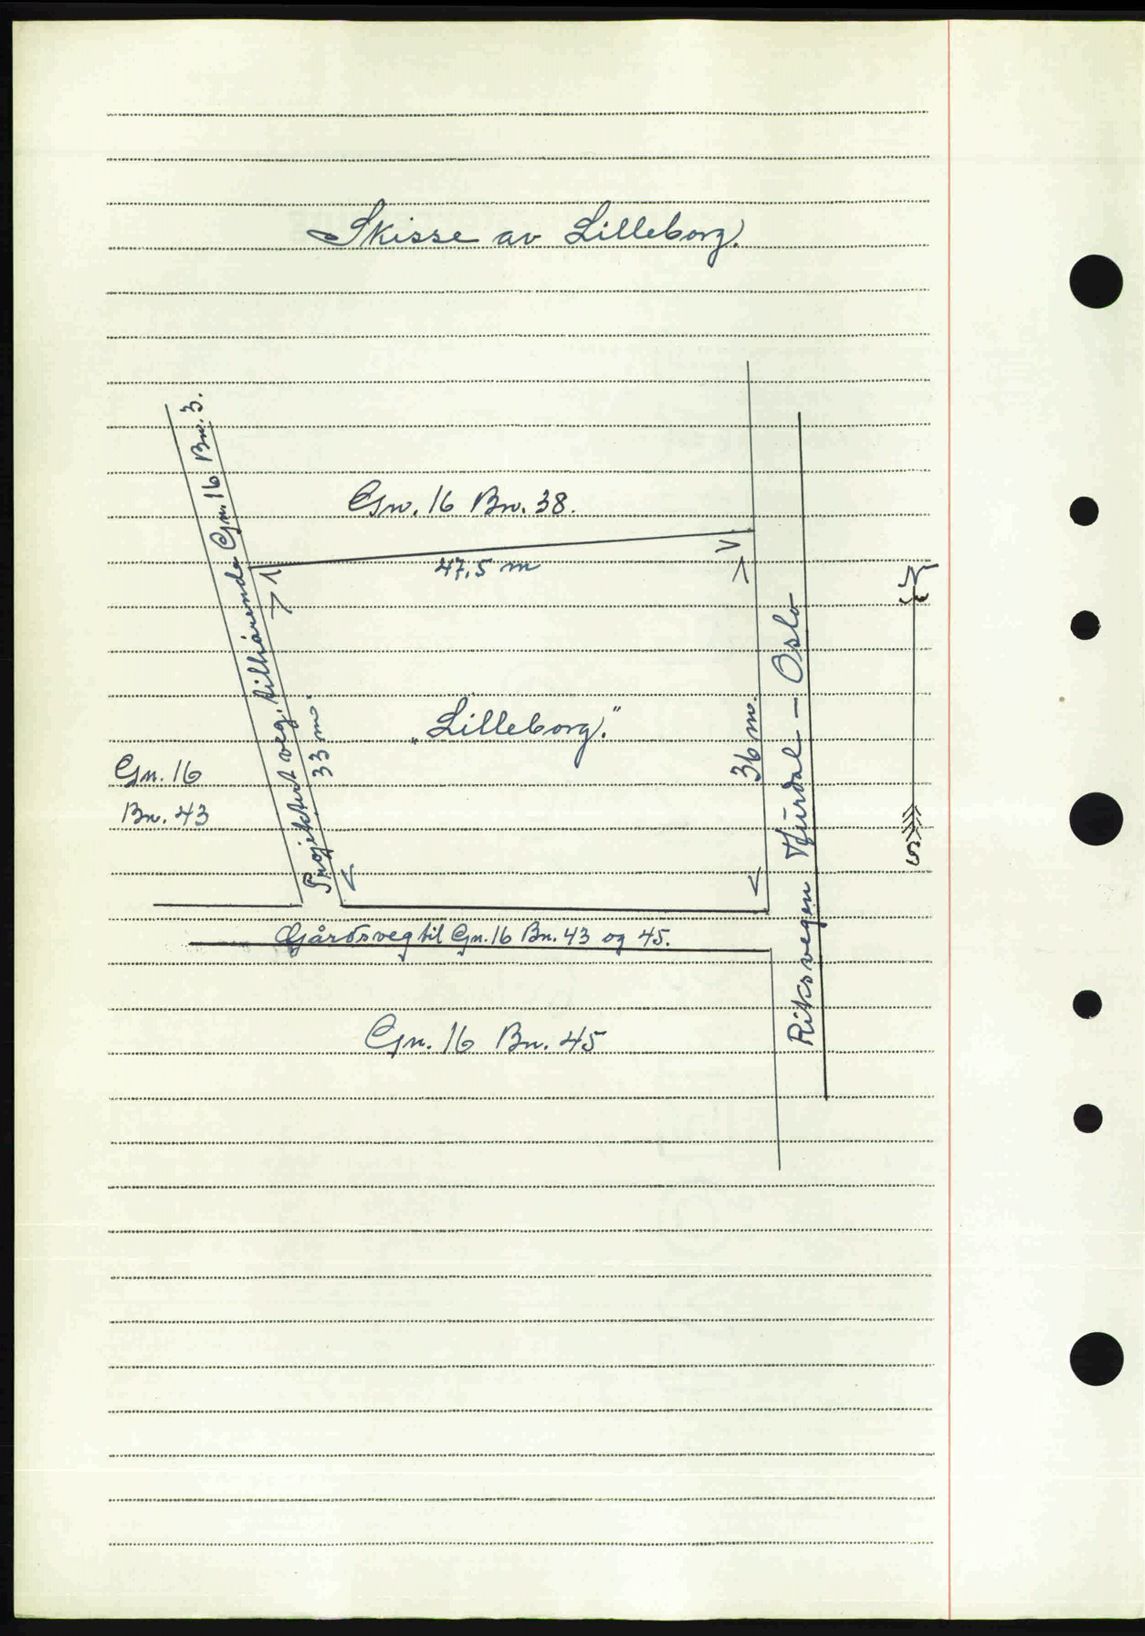 Skisse av Lilleborg.
Projektert veg, tilhørende Gn. 16 Bn. 3.
Gn. 16 Bn. 38.
47,5 m
33 m.
„Lilleborg."
36 m.
Riksvegen Hurdal — Oslo
N
S
Gn. 16
Bn. 43
Gårdsveg til Gn. 16 Bn. 43 og 45.
Gn. 16 Bn. 45